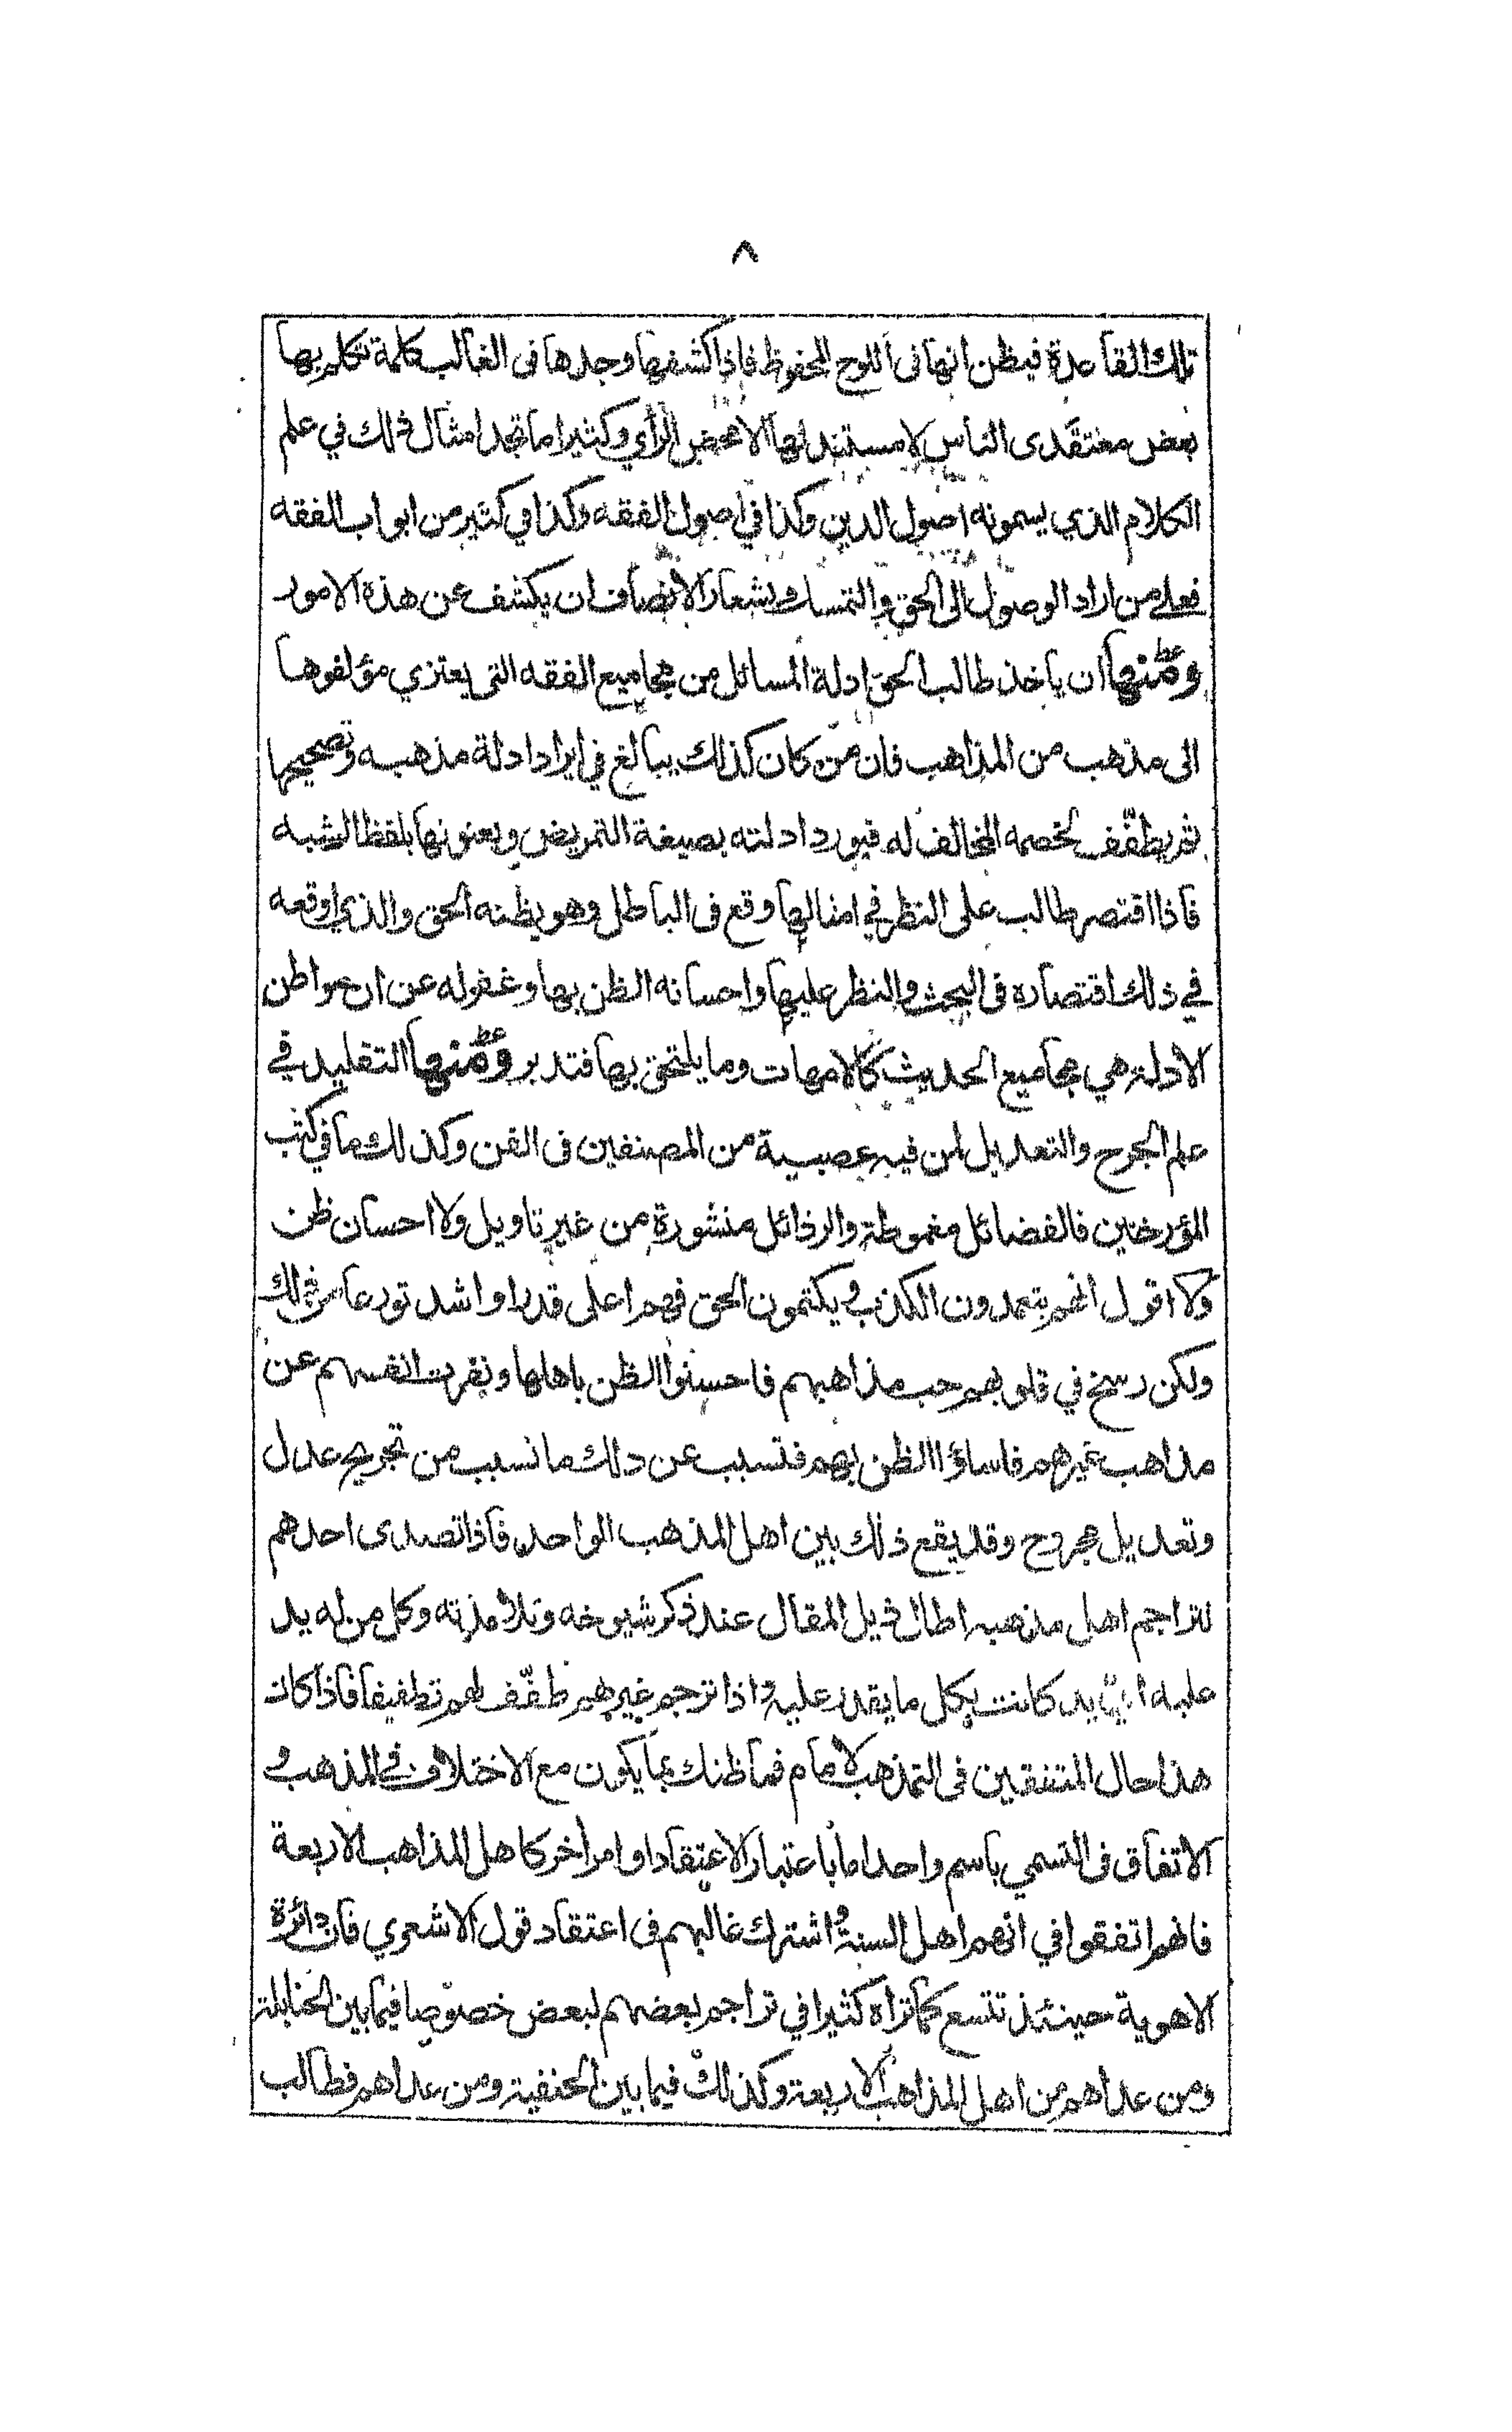 ٨
تلك القاعدة فيظن انها فى اللوح المحفوظ فاذا كشفها وجدها فى الغالب كلمة تكلم بها
بعض معتقدى الناس لا مستند لها الا محض الرأي وكثيرا ما تجد امثال ذلك في علم
الكلام الذي يسمونه اصول الدين وكذا في اصول الفقه وكذا في كثير من ابواب الفقه
فعلى من اراد الوصول الى الحق والتمسك بشعار الانصاف ان يكشف عن هذه الامور
ومنها ان ياخذ طالب الحق ادلة المسائل من مجاميع الفقه التى يعتزي مؤلفوها
الى مذهب من المذاهب فان من كان كذلك يبالغ في ايراد ادلة مذهبه وتصحيحها
ثم يطفّف لخصمه المخالف له فيورد ادلته بصيغة التمريض ويعنونها بلفظ الشبه
فاذا اقتصر طالب على النظر في امثالها وقع فى الباطل وهو يظنه الحق والذي اوقعه
في ذلك اقتصاره فى البحث والنظر عليها واحسانه الظن بها وغفوله عن ان مواطن
الادلة هي مجاميع الحديث كالامهات وما يلتحق بها فتدبر ومنها التقليد في
علم الجرح والتعديل لمن فيه عصبية من المصنفين فى الفن وكذلك ما في كتب
المؤرخين فالفضائل مغموطة والرذائل منشورة من غير تاويل ولا احسان ظن
ولا اقول انهم يتعمدون الكذب و يكتمون الحق فهم اعلى قدرا واشد تورعا من ذلك
ولكن رسخ في قلوبهم حب مذاهبهم فاحسنوا الظن باهلها ونفرت انفسهم عن
مذاهب غيرهم فاساؤا الظن بهم فتسبب عن ذلك ما تسبب من تجريح عدل
وتعديل مجروح وقد يقع ذلك بين اهل المذهب الواحد فاذا تصدى احدهم
لتراجم اهل مذهبه اطال ذيل المقال عند ذكر شيوخه وتلامذته وكل من له يد
عليه يد كانت بكل ما يقدر عليه واذا ترجم غيرهم طفّف لهم تطفيفا فاذا كان
هذا حال المتفقين فى التمذهب لامام فما ظنك بما يكون مع الاختلاف في المذهب و
الاتفاق فى التسمي باسم واحد اما باعتبار الاعتقاد او امر اخر كاهل المذاهب الاربعة
فانهم اتفقوا في انهم اهل السنة و اشترك غالبهم فى اعتقاد قول الاشعري فان دائرة
الاهوية حينئذ تتسع كما تراه كثيرا في تراجم بعضهم لبعض خصوصا فيما بين الحنابلة
ومن عداهم من اهل المذاهب الاربعة وكذلك فيما بين الحنفية ومن عداهم فطالب